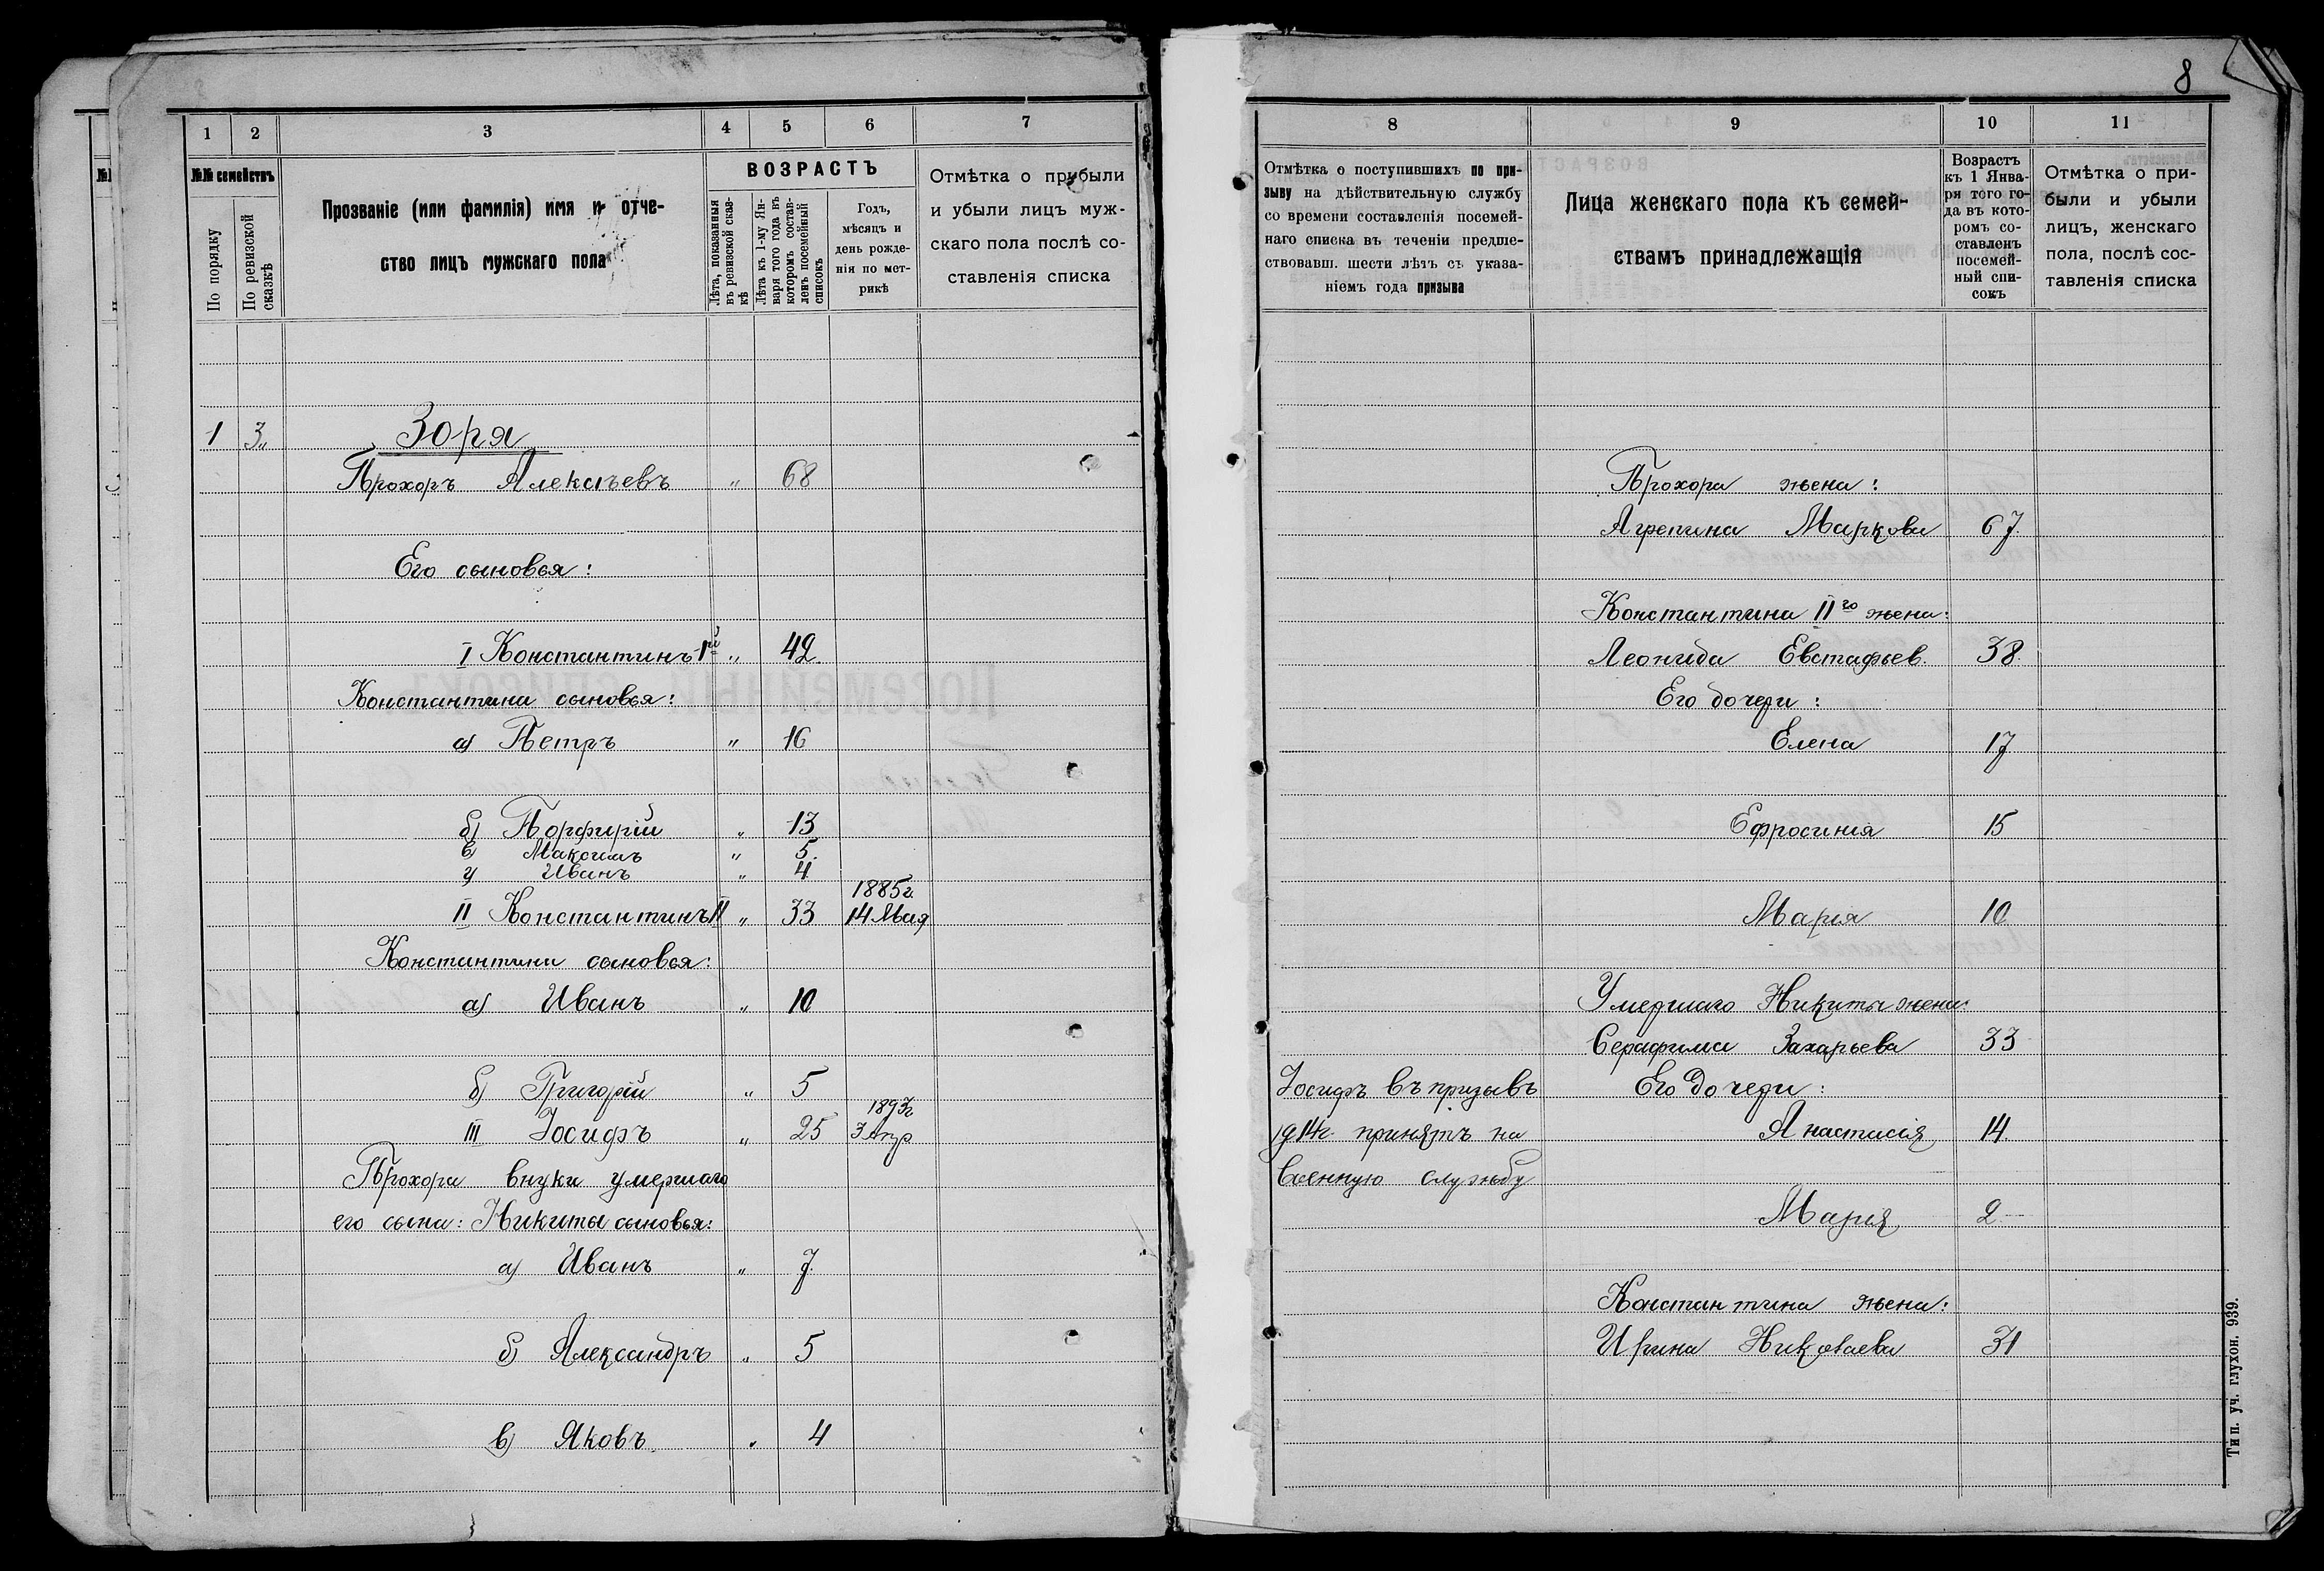 8
1 2 3 4 5 6 7
№№ семействъ
По порядку
По ревизской сказкѣ
Прозваніе (или фамилія) имя и отче-
ство лицъ мужскаго пола
ВОЗРАСТЪ
Лѣта, показанныя
въ ревизской сказ-
кѣ
Лѣта къ 1-му Ян-
варя того года въ
которомъ состав-
ленъ посемейный
списокъ
Годъ,
мѣсяцъ и
день рожде-
нія по мет-
рикѣ
Отмѣтка о прибыли
и убыли лицъ муж-
скаго пола послѣ со-
ставленія списка
1 3„ Зоря
Прохоръ Алексѣевъ „ 68
Его сыновья:
I Константинъ 1й „ 42.
Константина сыновья:
а) Петръ „ 16
б) Порфирій „ 13
в) Максимъ „ 5.
г) Иванъ „ 4.
1885г.
II Константинъ II „ 33 14 Мая
Константина сыновья:
а) Иванъ „ 10
б) Григорій „ 5
1893г
III Іосифъ „ 25 3 Апр
Прохора внуки умершаго
его сына: Никиты сыновья:
а) Иванъ „ 7.
б) Александръ „ 5
в) Яковъ „ 4
8 9 10 11
Отмѣтка о поступившихъ по при-
зыву на дѣйствительную службу
со времени составленія посемей-
наго списка въ теченіи предше-
ствовавш. шести лѣтъ съ указа-
ніемъ года призыва
Лица женскаго пола къ семей-
ствамъ принадлежащія
Возрастъ
къ 1 Янва-
ря того го-
да въ кото-
ромъ со-
ставленъ
посемей-
ный спи-
сокъ
Отмѣтка о при-
были и убыли
лицъ, женскаго
пола, послѣ сос-
тавленія списка
Прохора жена:
Агрепина Маркова 67.
Константина IIго жена:
Леонида Евстафьев. 38.
Его дочери:
Елена 17
Ефросинія 15
Марія 10
Умершаго Никиты жена:
Серафима Захарьева 33
Іосифъ въ призывъ Его дочери:
1914г. принятъ на Анастасія 14.
военную службу
Марія 2
Константина жена:
Ирина Николаева 31
Тип. уч. глухон. 939.